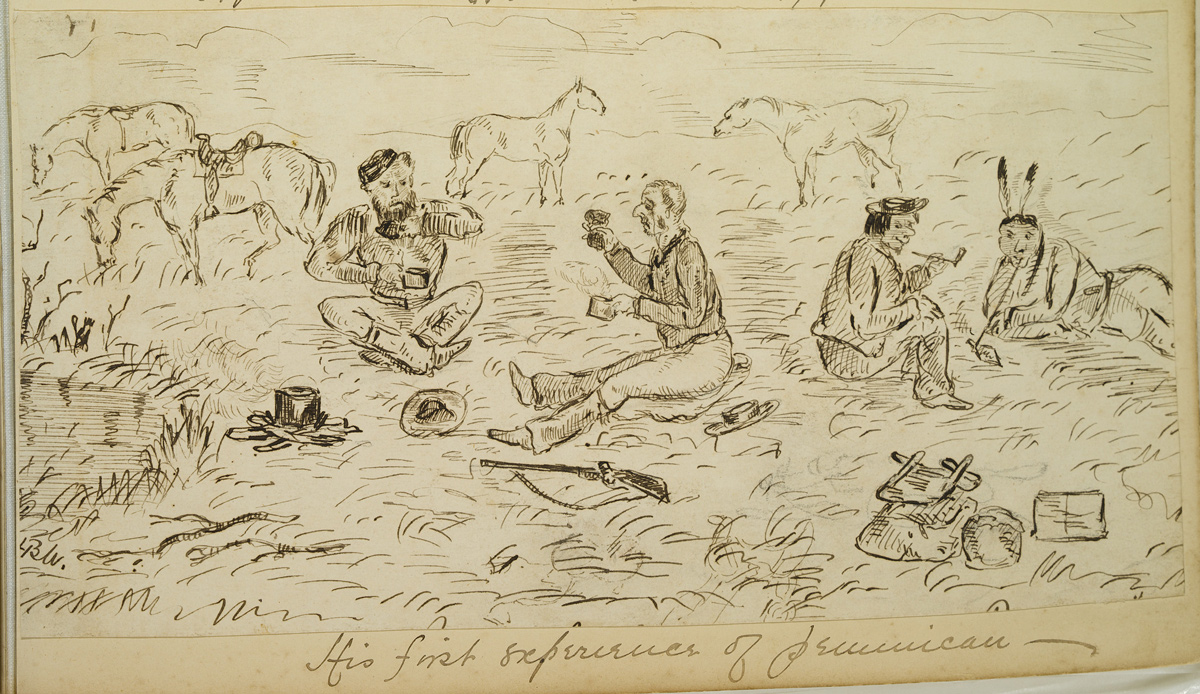 GBW.
His first experience of pemmican —